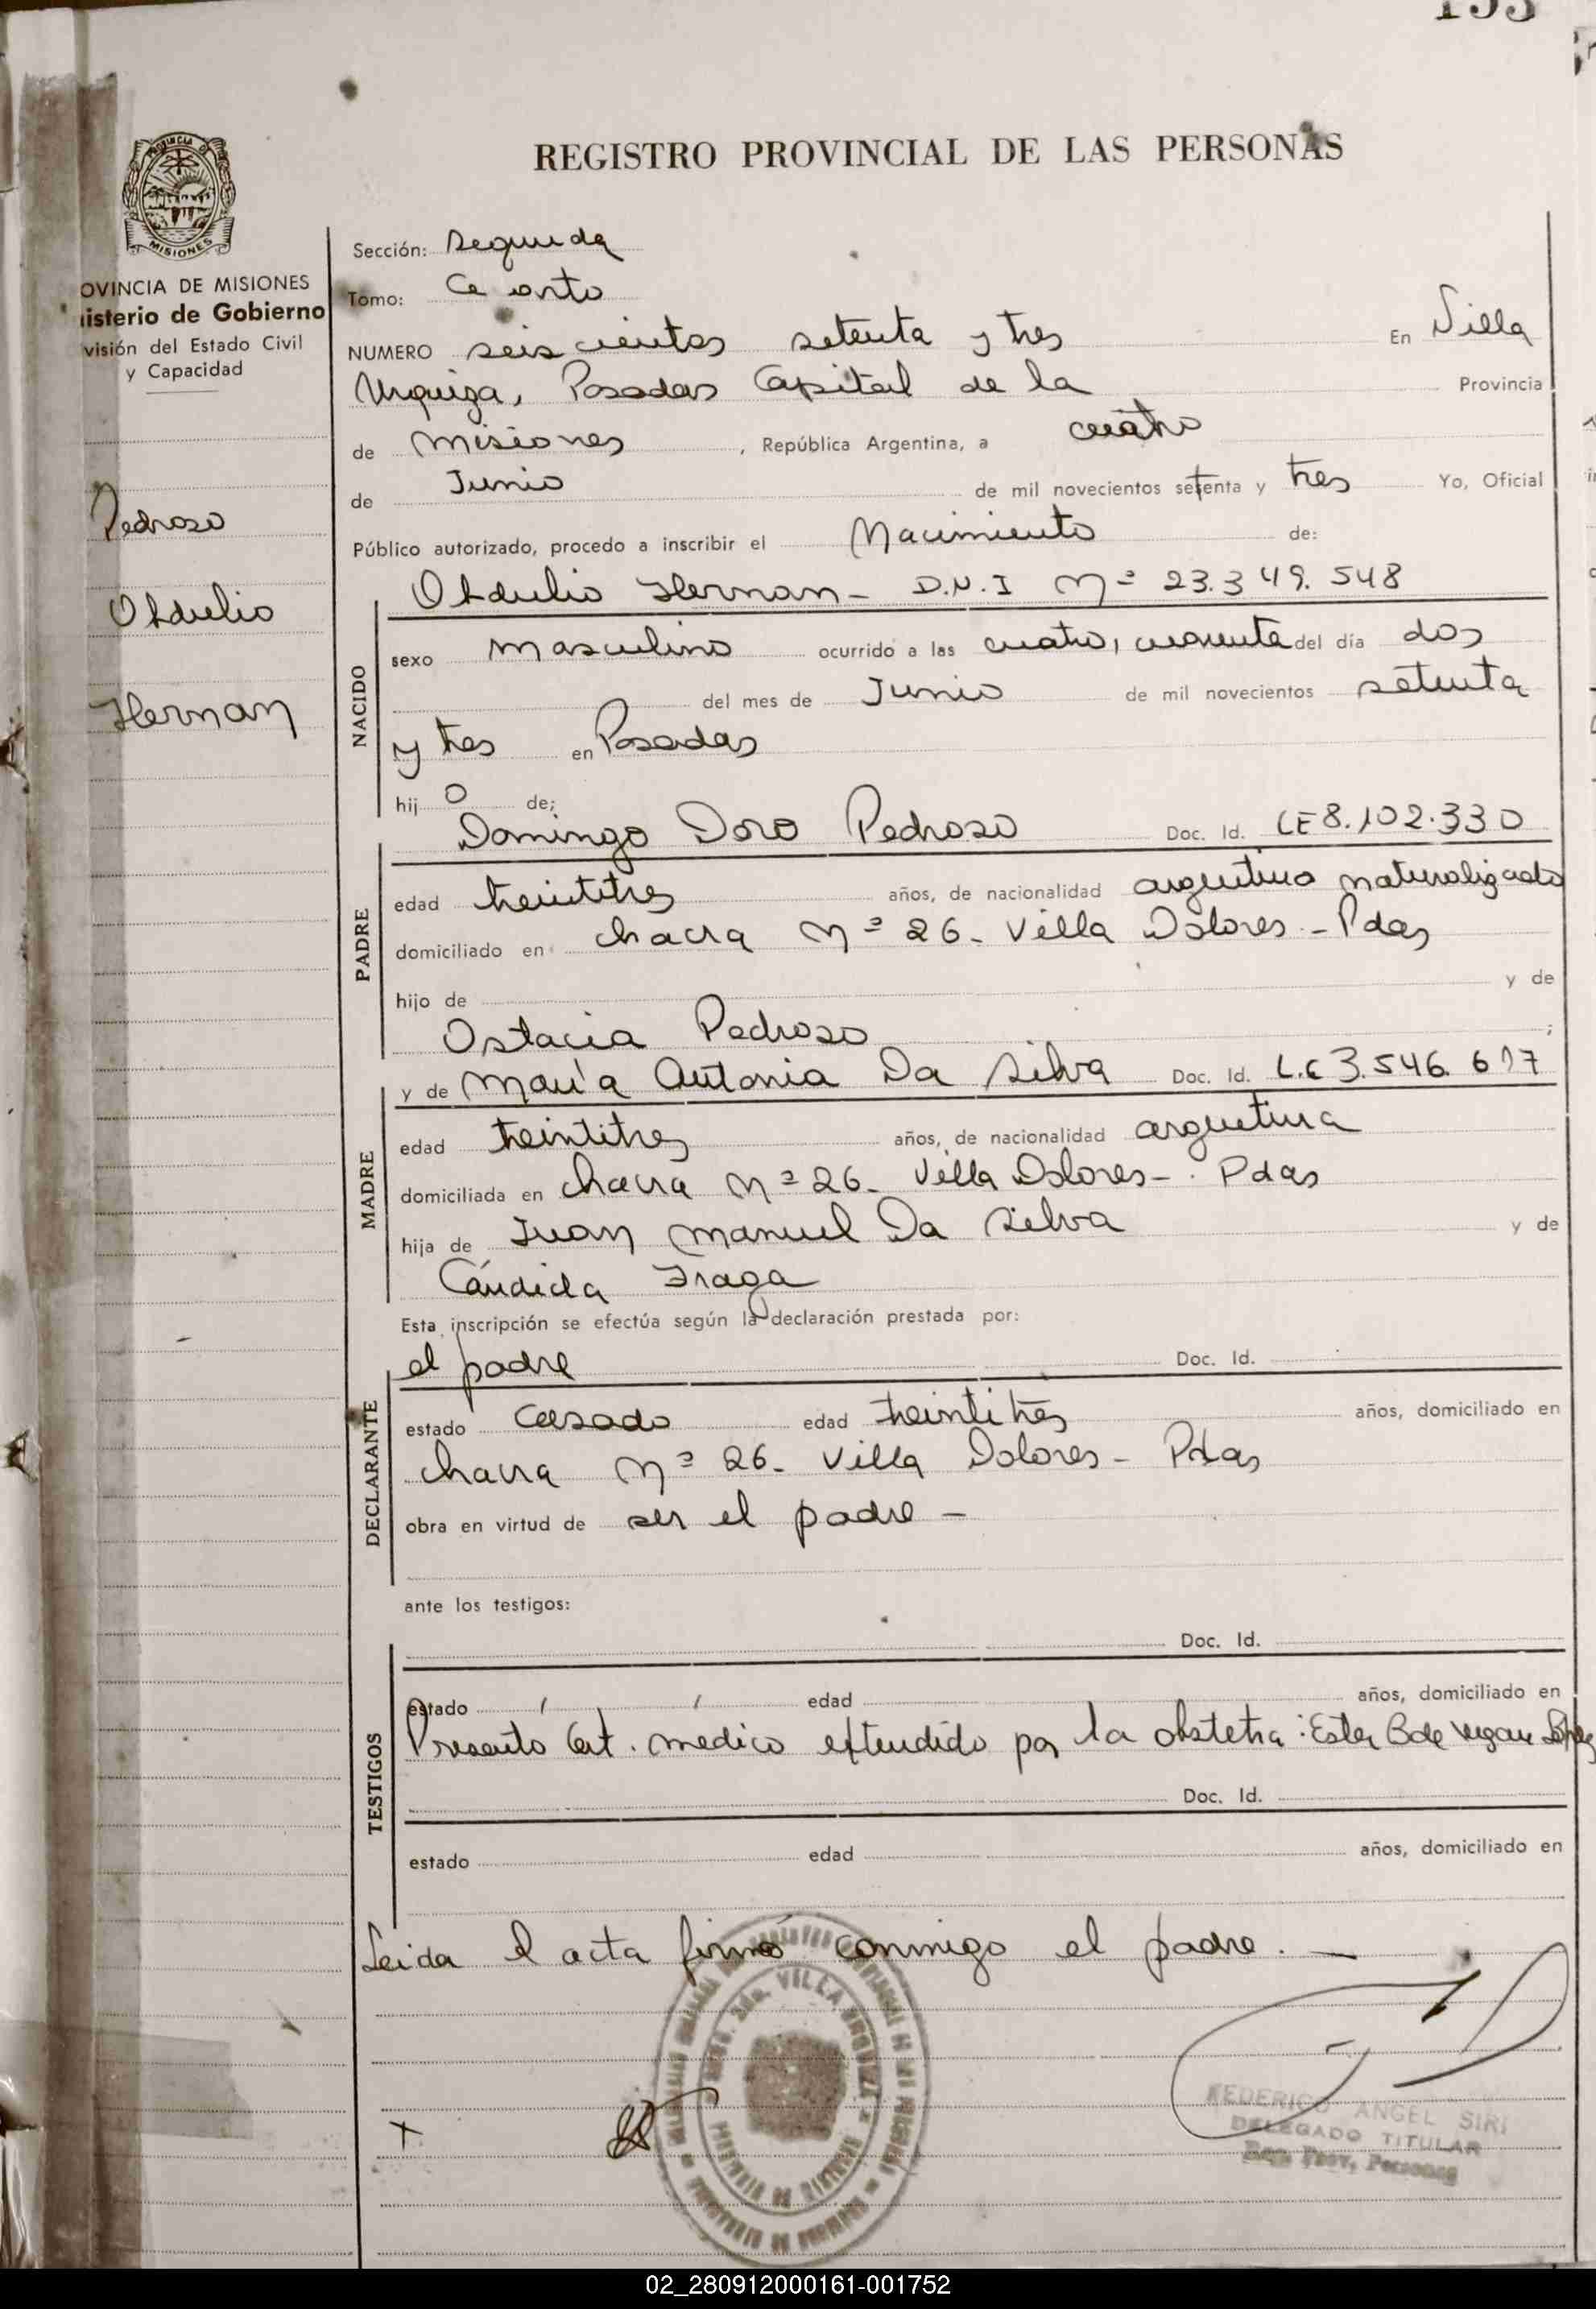 REGISTRO PROVINCIAL DE LAS PERSONAS
PROVINCIA DE
MISIONES
OVINCIA DE MISIONES
isterio de Gobierno
visión del Estado Civil
y Capacidad
Pedroso
Obdulio
Hernan
Sección: Segunda
Tomo:
NUMERO seis cientos setenta y tres En Villa
Urquiza, Posadas Capital de la Provincia
de Misiones, República Argentina, a cuatro
de Junio de mil novecientos setenta y tres Yo, Oficial
Público autorizado, procedo a inscribir el Nacimiento de:
Obdulio Hernan - D.N.I Nº 23.349.548
NACIDO
sexo masculino ocurrido a las cuatro, cuarenta del día dos
del mes de Junio de mil novecientos setenta
y tres en Posadas
hij o de;
Domingo Doro Pedroso Doc. Id. LE 8.102.330
PADRE
edad treintitres años, de nacionalidad argentino naturalizado
domiciliado en chacra Nº 26 - Villa Dolores - Pdas
hijo de y de
Ostacia Pedroso ;
y de María Antonia Da Silva Doc. Id. L.C 3.546.617
MADRE
edad treintitres años, de nacionalidad argentina
domiciliada en chacra Nº 26 - Villa Dolores - Pdas
hija de Juan Manuel Da Silva y de
Cándida Fraga
Esta inscripción se efectúa según la declaración prestada por:
el padre Doc. Id.
DECLARANTE
estado casado edad treintitres años, domiciliado en
chacra Nº 26 - Villa Dolores - Pdas
obra en virtud de ser el padre -
ante los testigos:
Doc. Id.
TESTIGOS
estado edad años, domiciliado en
Presento Cert. medico extendido por la obstetra: Ester B de
Doc. Id.
estado edad años, domiciliado en
Leida el acta firmó conmigo el padre. -
VILLA URQUIZA
FEDERICO ANGEL SIRI
DELEGADO TITULAR
Reg. Prov. Personas
02_280912000161-001752